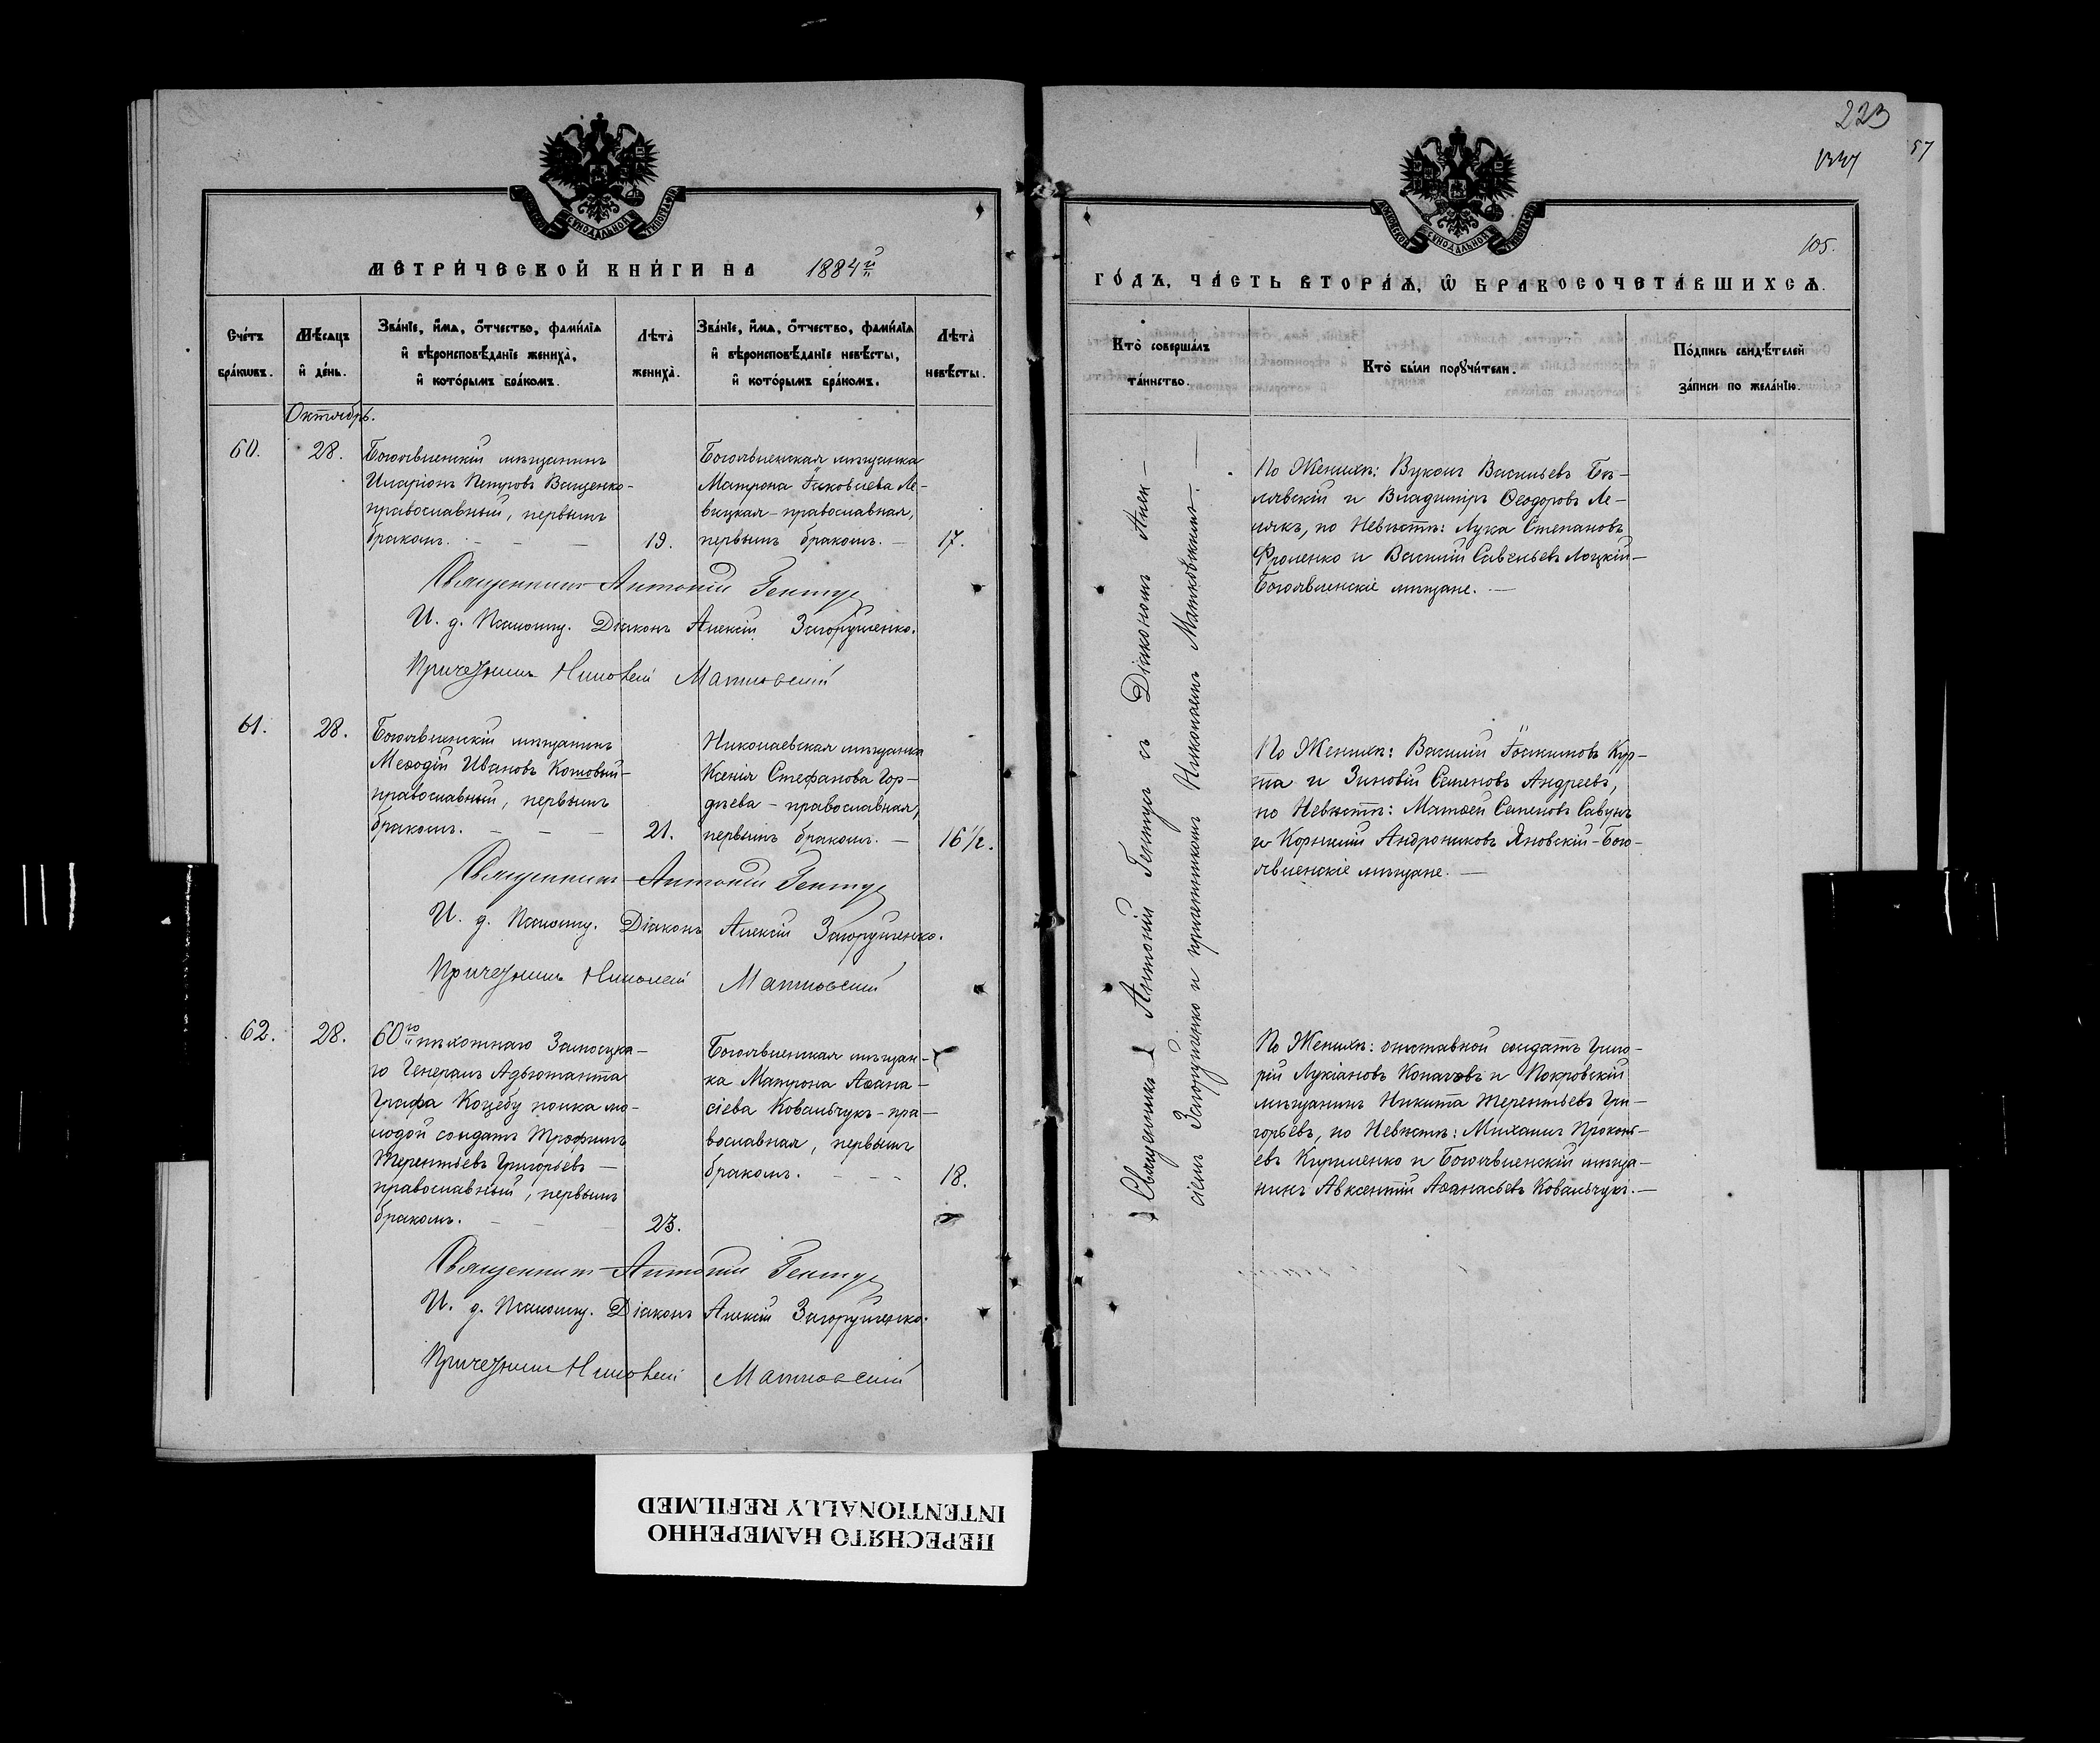 223
105.
МЕТРИЧЕСКОЙ КНИГИ НА 1884й
ГОДЪ, ЧАСТЬ ВТОРАЯ, Ѿ БРАКОСОЧЕТАВШИХСЯ.
Счетъ браковъ.
Мѣсяцъ и день.
Званіе, имя, отчество, фамилія и вѣроисповѣданіе жениха, и которымъ бракомъ.
Лѣта жениха.
Званіе, имя, отчество, фамилія и вѣроисповѣданіе невѣсты, и которымъ бракомъ.
Лѣта невѣсты.
Кто совершалъ таинство.
Кто были поручители.
Подпись свидѣтелей записи по желанію.
Октябрь.
60.
28.
Богоявленскій мѣщанинъ
Иларіонъ Петровъ Ващенко-
православный, первымъ
бракомъ.
19.
Богоявленская мѣщанка
Матрона Іаковлева Ле-
вицкая - православная,
первымъ бракомъ. —
17.
Священникъ Антоній Гентуз
И. д. Псаломщ. Діаконъ Алексій Загоруйченко.
Причетникъ Николай Матковскій
61.
28.
Богоявленскій мѣщанинъ
Меѳодій Ивановъ Котовый-
православный, первымъ
бракомъ.
21.
Николаевская мѣщанка
Ксенія Стефанова Гор-
дѣева - православная,
первымъ бракомъ. —
16 1/2.
Священникъ Антоній Гентуз
И. д. Псаломщ. Діаконъ Алексій Загоруйченко.
Причетникъ Николай Матковскій
62.
28.
60го пѣхотнаго Замосцка-
го Генералъ Адъютанта
Графа Коцебу полка мо-
лодой солдатъ Трофимъ
Терентьевъ Григорьевъ —
православный, первымъ
бракомъ.
23.
Богоявленская мѣщан-
ка Матрона Аѳана-
сіева Ковальчукъ - пра-
вославная, первымъ
бракомъ.
18.
Священникъ Антоній Гентуз
И. д. Псаломщ. Діаконъ Алексій Загоруйченко.
Причетникъ Николай Матковскій
Священникъ Антоній Гентуз съ Діакономъ Алек-
сіемъ Загоруйченко и причетникомъ Николаемъ Матковскимъ.
По Женихѣ: Вуколъ Васильевъ Бѣ-
лявскій и Владиміръ Ѳеодоровъ Ле-
лякъ, по Невѣстѣ: Лука Степановъ
Фроленко и Василій Савельевъ Лоцкій-
Богоявленскіе мѣщане. —
По Женихѣ: Василій Іоакимовъ Кур-
та и Зиновій Семеновъ Андреевъ,
по Невѣстѣ: Матѳей Семеновъ Савунъ
и Корнилій Андрониковъ Яновскій-Бого-
явленскіе мѣщане. —
По Женихѣ: отставной солдатъ Григо-
рій Лукіановъ Копачовъ и Покровскій
мѣщанинъ Никита Терентьевъ Гри-
горьевъ, по Невѣстѣ: Михаилъ Прокопь-
евъ Кириленко и Богоявленскій мѣща-
нинъ Авксентій Аѳанасьевъ Ковальчукъ. —
ПЕРЕСНЯТО НАМЕРЕННО
INTENTIONALLY REFILMED